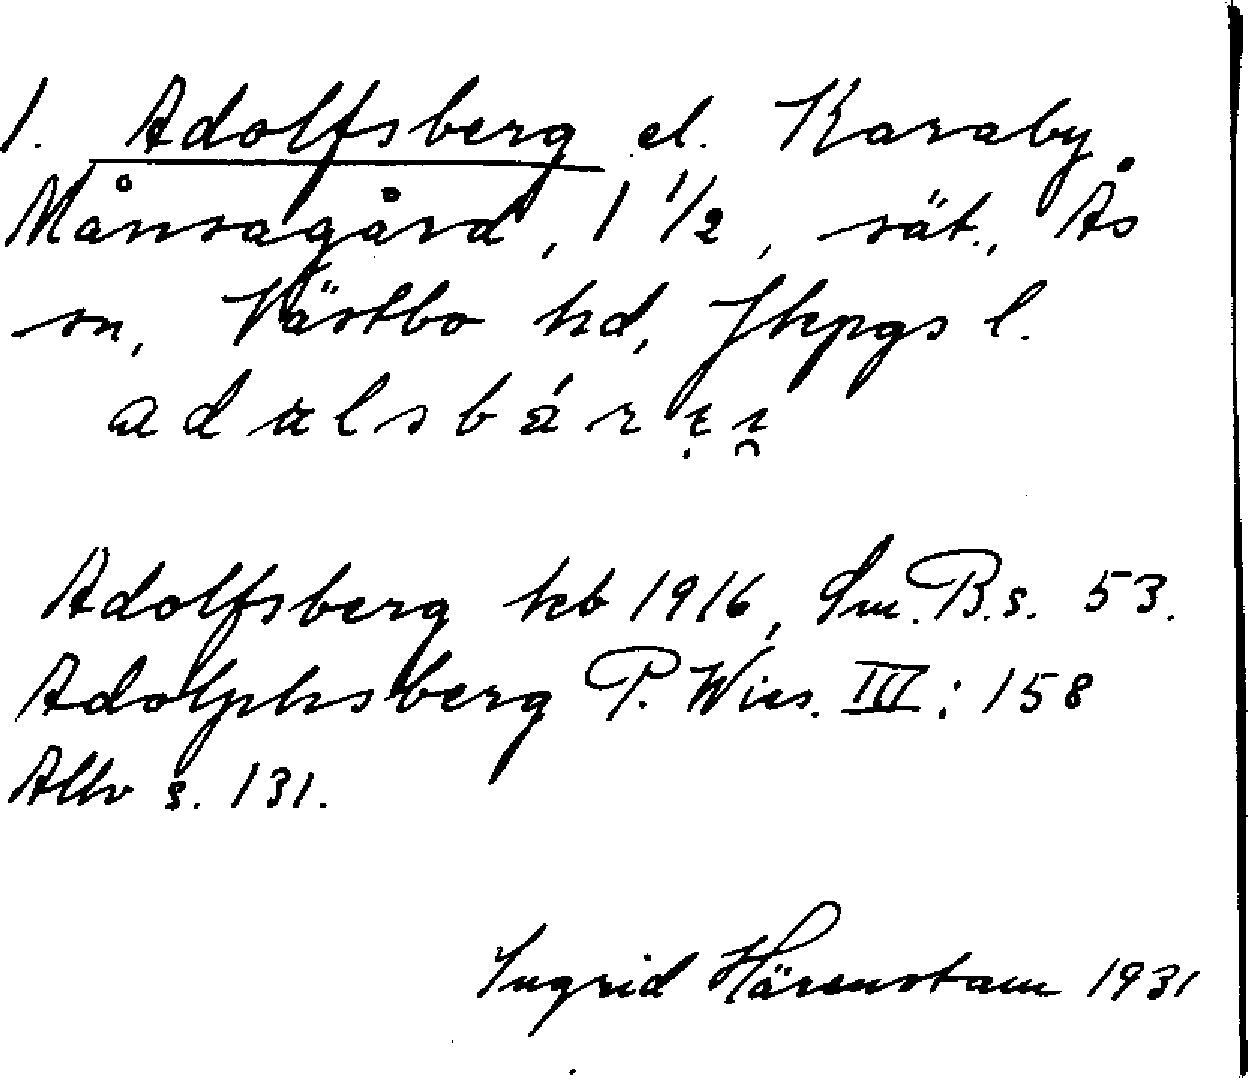 1. Adolfsberg el. Karaby
Månsagård, 1 1/2, sät., Ås
sn, Västbo hd, Jkpgs l.
Adolfsberg kb 1916, Sm. B. s. 53.
Adolphsberg P. Wies. III: 158
Allv s. 131.
Ingrid Härenstam 1931